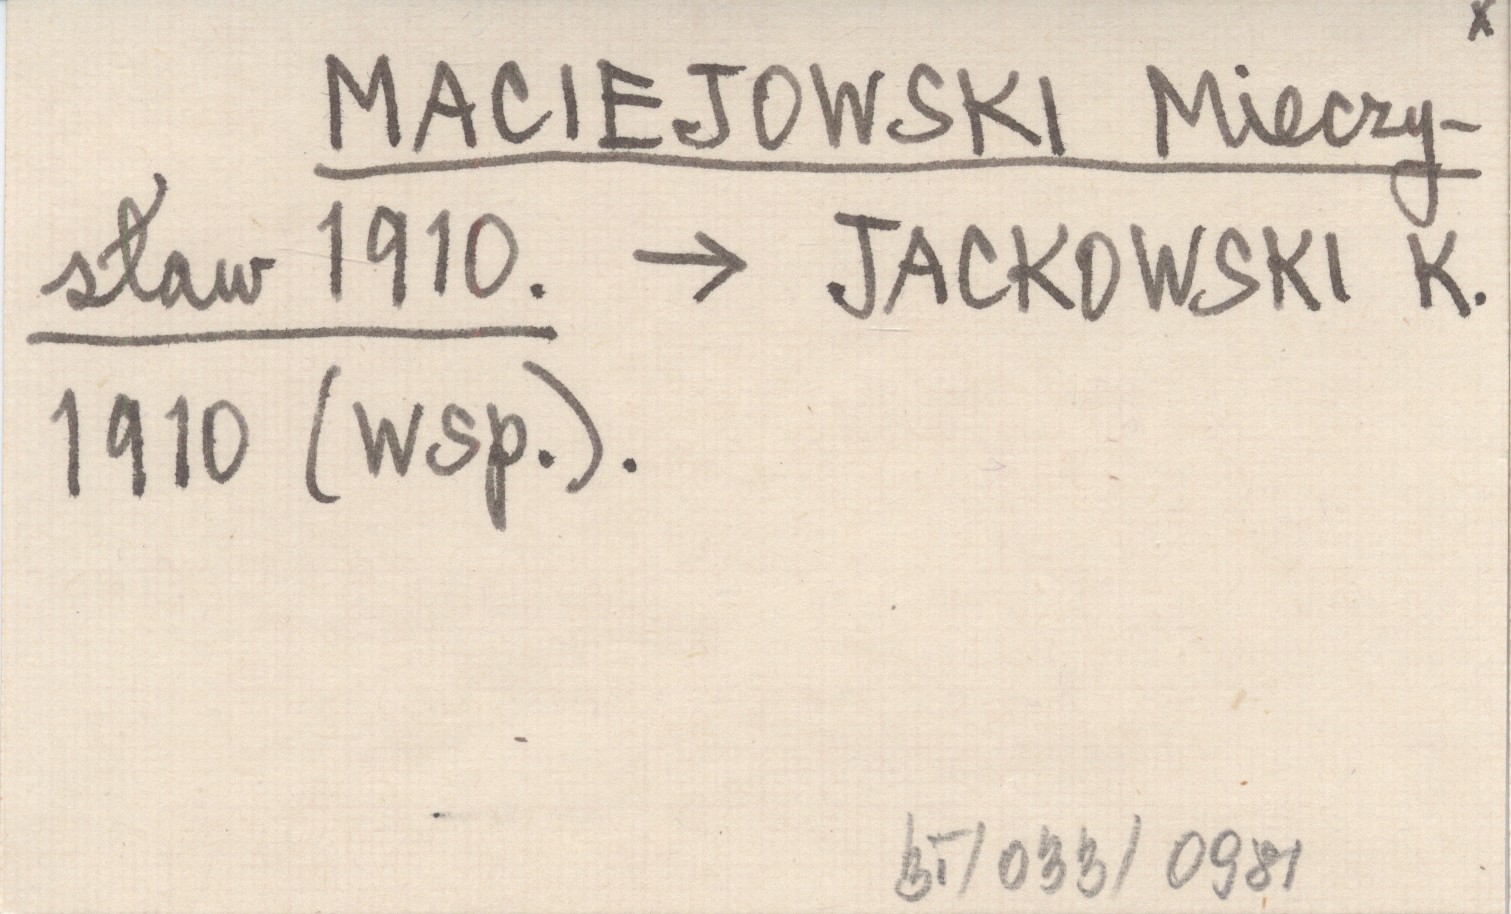 x
MACIEJOWSKI Mieczy-
sław 1910. → JACKOWSKI K.
1910 (wsp.).
/033/ 0981